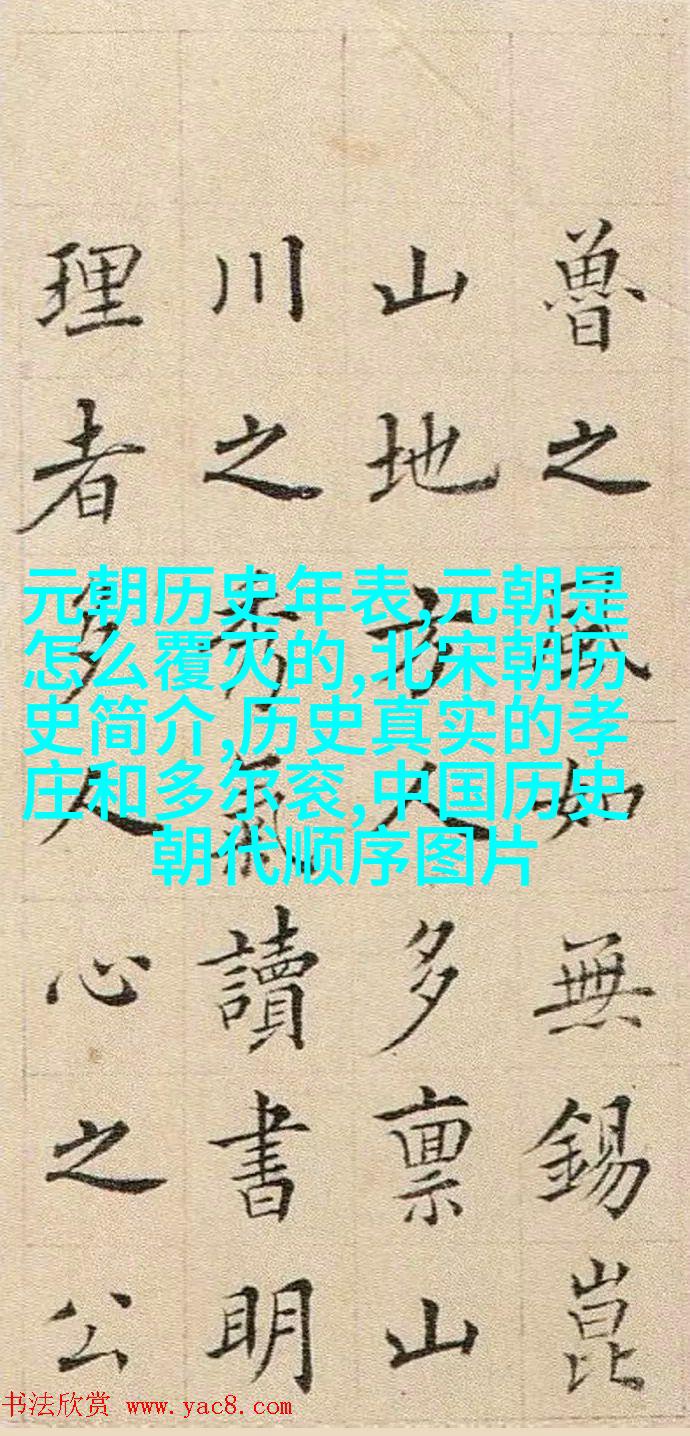 魯之風如無錫崑
山地方人多禀山
川之秀氣讀書明
理者多人心之公
元朝历史年表,元朝是
怎么覆灭的,北宋朝历
史简介,历史真实的孝
庄和多尔衮,中国历史
朝代顺序图片
书法欣赏 www.yac8.com